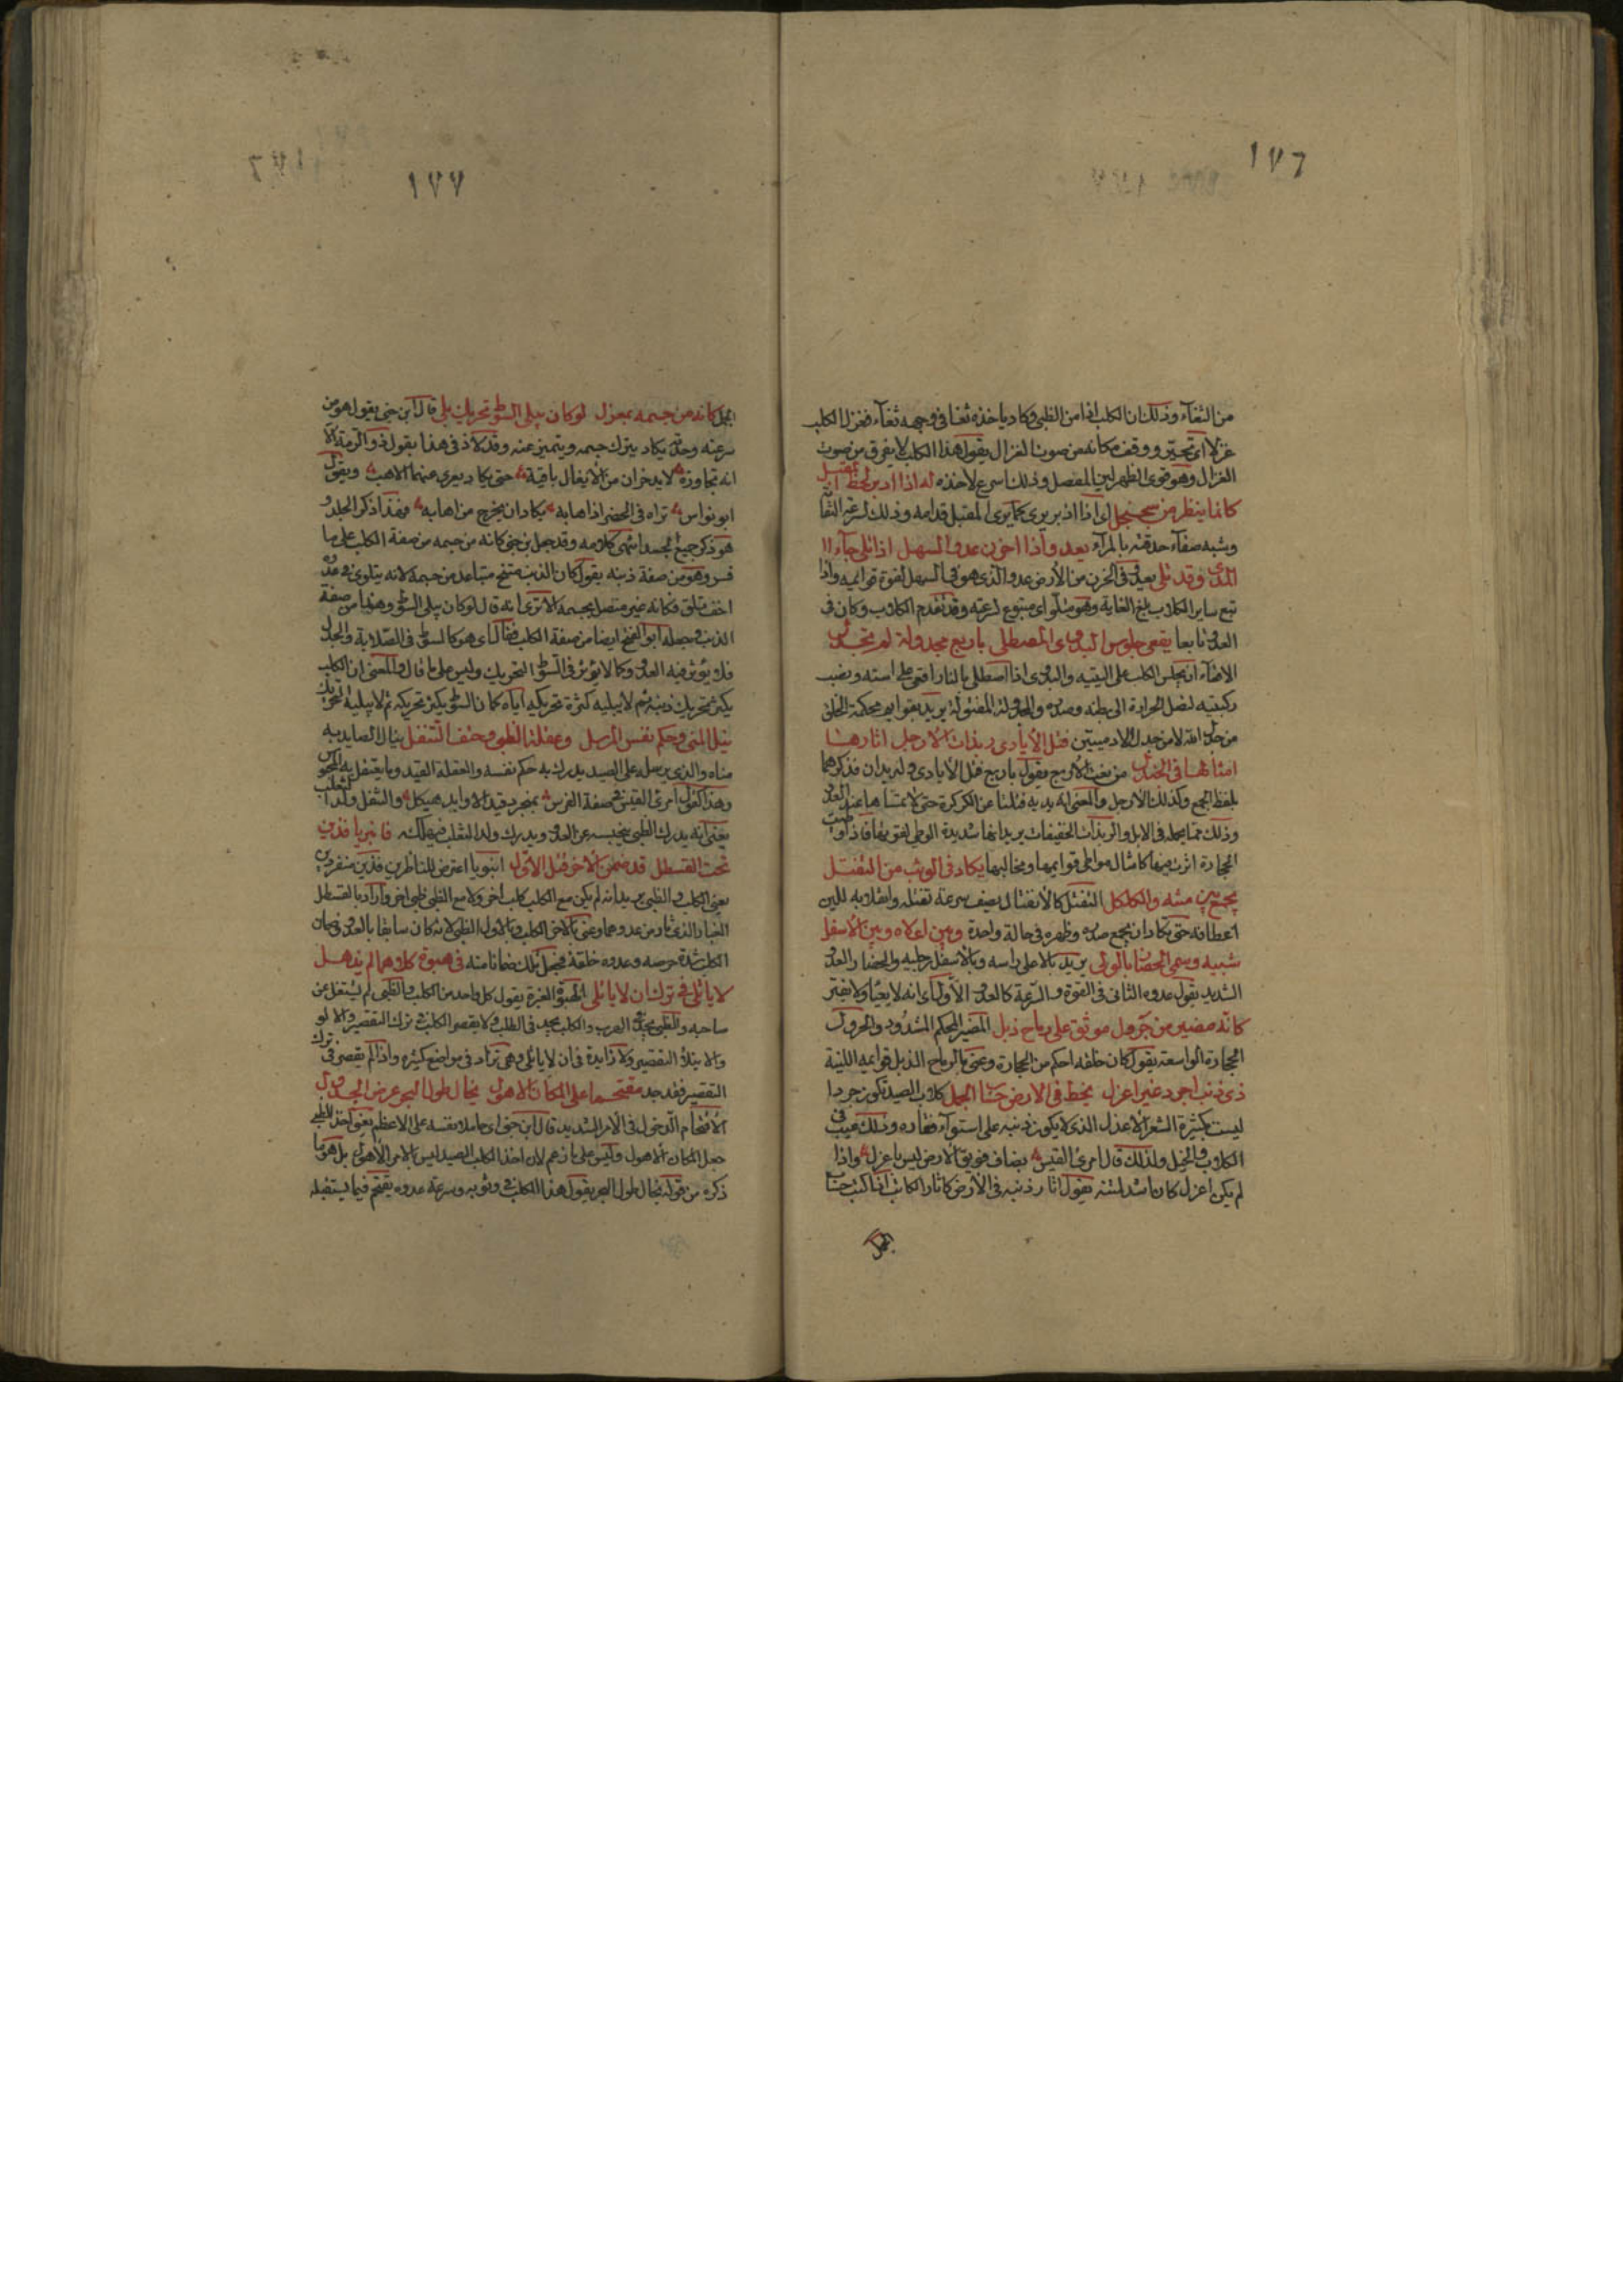 ١٧٦
من الثغآء وذلك ان الكلب اذا من الظبى وكاد ياخذه ثغا فى وجهه ثغآء فغزل الكلب
غزلا اى تحير ووقف مكانه من صوت الغزال يقول هذا الكلب لا يفرق من صوت
الغزال وهو قوى الظهر لين المفصل وذلك اسرع لاخذه له اذا ادبر لحظ المقبل
كانما ينظر من سجنجل اى اذا ادبر يرى كما يرى المقبل قدامه وذلك لسرعة التفا
وشبه صفآء حدقته بالمرآة يعدو اذا احزن عدو المسهل اذا تلى جآء ال
المدى وقد تلى يعدو فى الحزن من الارض عدو الذى هو فى السهل لقوة قوايمه واذا
تبع ساير الكلاب بلغ الغاية وهو متلو اى متبوع لسرعته وقد تقدم الكلاب وكان فى
العدو تابعا يقعى جلوس البدوى المصطلى باربع مجدولة لم تجدل
الاقعآء ان يجلس الكلب على اليتيه والبدوى اذا اصطلى بالنار اقعى على استه ونصب
ركبتيه لتصل الحرارة الى بطنه وصدره والمجدولة المفتولة يريد بقوايم محكمة الخلق
من جدل الله لا من جدل الادميين فتل الايادى ربذات الارجل اثارها
امثالها فى الجندل من نعت الاربع يقول باربع فتل الايادى وله يدان فذكرهما
بلفظ الجمع وكذلك الارجل والمعنى ان يديه فتلتا عن الكركرة حتى لا تمسها عند العدو
وذلك مما يحمد فى الابل والربذات الخفيفات يريد انها شديدة الوطى لقوتها فاذا وطئت
الحجارة اثرت فيها كامثال مواطى قوايمها ومخالبها يكاد فى الوثب من التفتل
يجمع بين متنه والكلكل التفتل كالانفتال يصف سرعة تفتله وانقلابه للين
اعطافه حتى يكاد ان يجمع صدره وظهره فى حالة واحدة وبين اعلاه وبين الاسفل
شبيه وسمى الحضار بالولى يريد بالاعلى راسه وبالاسفل رجليه والحضار العدو
الشديد يقول عدوه الثانى فى القوة والسرعة كالعدو الاول اى انه لا يعيا ولا يفتر
كانه مضبر من جرول موثق على رماح ذبل المضبر المحكم المشدود والجرول
الحجارة الواسعة يقول كان خلقه احكم من الحجارة وعنى بالرماح الذبل قوايمه اللينة
ذى ذنب اجرد غير اعزل يخط فى الارض حساب الجمل كلاب الصيد تكون جردا
ليست بكثيرة الشعر الاعزل الذى لا يكون ذنبه على استوآء فقاره وذلك عيب فى
الكلاب والخيل ولذلك قال امرئ القيس بضاف فويق الارض ليس باعزل واذا
لم يكن اعزل كان اشد لمتنه يقول اثار ذنبه فى الارض كاثار الكاتب اذا كتب حساب
الجمل
١٧٧
الجمل كانه من جسمه بمعزل لو كان يبلى السوط تحريك بلى قال ابن جنى يقول هو من
سرعته وحدته يكاد يترك جسمه ويتميز عنه وقد لاذ فى هذا بقول ذو الرمة الا
انه تجاوزه لا يدخران من الايغال باقية حتى يكاد تفرى عنهما الاهب ويقول
ابو نواس تراه فى الحضر اذا هابه يكاد ان يخرج من اهابه فهذا ذكر الجلد و
هو ذكر جميع الجسد انتهى كلامه وقد جعل بن جنى كانه من جسمه من صفة الكلب على ما
فسر وهو من صفة ذنبه يقول كان الذنب متنح متباعد من جسمه لانه يتلوى فى عدوه
اخف تلو فكانه غير متصل بجسمه الا ترى انه قال لو كان يبلى السوط وهذا من صفة
الذنب وجعله ابو الفتح ايضا من صفة الكلب فقال اى هو كالسوط فى الصلابة والجدل
فلا يؤثر فيه العدو كما لا يؤثر فى السوط التحريك وليس على ما قال والمعنى ان الكلب
يكثر تحريك ذنبه ثم لا يبليه كثرة تحريكه اياه كما ان السوط يكثر تحريكه ثم لا يبليه التحريك
نيل المنى وحكم نفس المرسل وعقلة الظبى وحتف التتفل ينال الصايد به
مناه والذى يرسله على الصيد يدرك به حكم نفسه والعقلة القيد وما يعتقل به المحبوس
وهذا كقول امرئ القيس فى صفة الفرس بمنجرد قيد الاوابد هيكل والتتفل ولد الثعلب
يعنى انه يدرك الظبى فيحبسه عن العدو ويدرك ولد الثعلب فيهلكه فانبريا فذين
تحت القسطل قد ضمن الاخر قتل الاول انبريا اعترضا للناظرين فذين منفردين
يعنى الكلب والظبى يريد انه لم يكن مع الكلب كلب اخر ولا مع الظبى ظبى اخر واراد بالقسطل
الغبار الذى ثار من عدوهما وعنى بالاخر الكلب وبالاول الظبى لانه كان سابقا بالعدو وضمان
الكلب شدة حرصه وعدوه خلفه فجعل ذلك ضمانا منه فى هبوة كلاهما لم يذهل
لا ياتلى فى ترك ان لا ياتلى الهبوة الغبرة يقول كل واحد من الكلب والظبى لم يشتغل عن
صاحبه والظبى يجد فى الهرب والكلب يجد فى الطلب ولا يقصر الكلب فى ترك التقصير والالو
والائتلاء التقصير ولا زايدة فى ان لا ياتلى وهى تزاد فى مواضع كثيره واذا لم يقصر فى ترك
التقصير فقد جد مقتحما على المكان الاهول يخال طول البحر عرض الجدول
الاقتحام الدخول فى الامر الشديد قال ابن جنى اى حاملا نفسه على الاعظم يعنى اخذ الظبى
جعل المكان الاهول وليس على ما زعم لان اخذ الكلب الصيد ليس بالامر الاهول بل هو ما
ذكره من قوله يخال طول البحر يقول هذا الكلب فى وثوبه وسرعة عدوه يقتحم فيما يستقبله